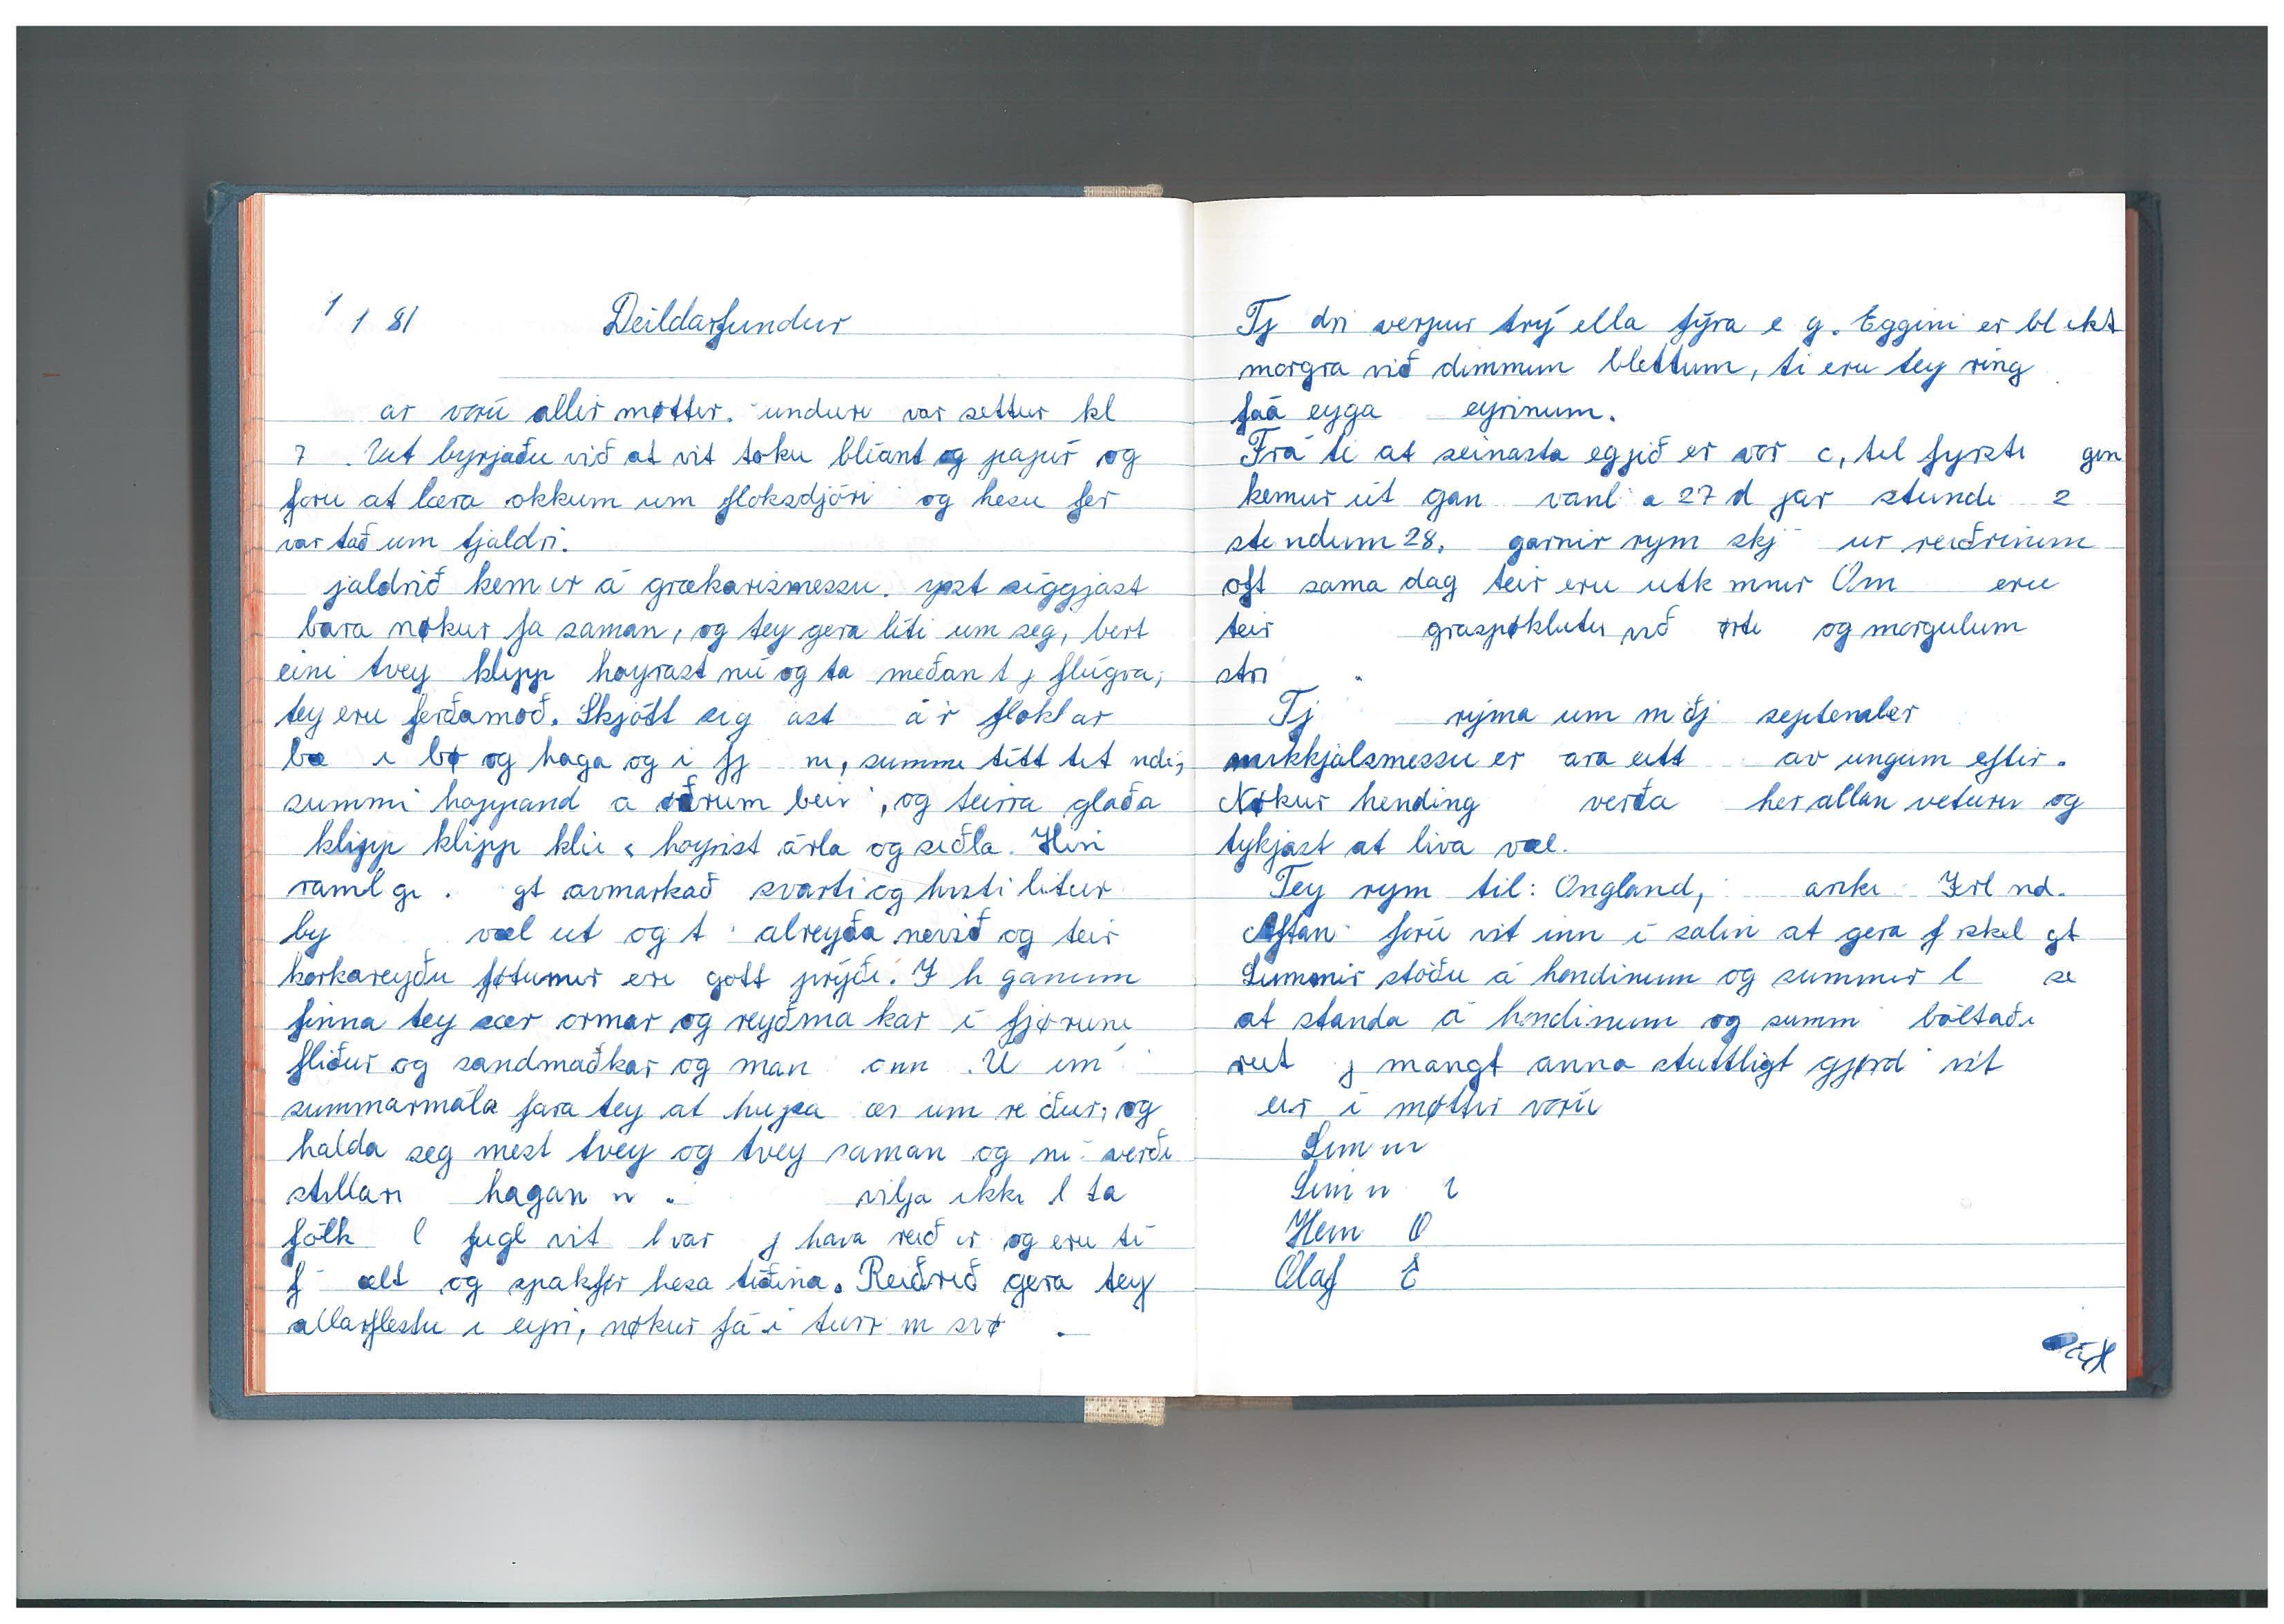 1 1 81 Deildarfundur
ar vórú allir møttir. unduri var settur kl
7 . Vit byrjaðu við at vit toku blíant og papír og
foru at læra okkum um floksdjóri og hesu fer
var tað um tjaldri.
jaldrið kem ur á grækarismessu. yst síggjast
bara nøkur fa saman, og tey gera líti um seg, bert
eini tvey klipp hoyrast nú og ta meðan t j flúgva;
tey eru ferðamoð. Skjótt sig ast á r flokkar
bæ i bø og haga og i fj ni, summi títt tit ndi;
summi hoppand a øðrum bein , og teirra glaða
klipp klipp kli hoyrist árla og siðla. Hin
ramligi . gt avmarkað svarti og hvíti litur
by væl ut og t alreyða nevið og teir
korkareyðu føtunir eru gott prýði. I h ganum
finna tey sær ormar og reyðma kar í fjøruni
fliður og sandmaðkar og man ann . U um
summarmála fara tey at hugsa ær um re ður, og
halda seg mest tvey og tvey saman og nú verði
stillari haganu . vilja ikki l ta
fólk l fugl vit hvar j hava reið ur og eru tí
f ælt og spakfør hesa tíðina. Reiðrið gera tey
allarflestu i eyri, nøkur fá i turr m svø .
Tj dri verpur trý ella fýra e g. Eggini er bl ikt
morgra við dimmum blettum, ti eru tey ring
fáa eyga eyrinum.
Frá ti at seinasta eggið er vor , til fyrsti gin
kemur út gan vanl a 27 d gar stundi 2
stundum 28. garnir rym skj ur reiðrinum
oft sama dag teir eru utk mnir Om eru
teir graspøklutir við ørti og morgulum
stri .
Tj rýma um m ðj september
mikkjalsmessu er ara eitt av ungum eftir.
Nøkur hending verða her allan veturin og
tykjast at liva væl.
Tey rym til: Ongland, arki Irl nd.
Aftan forú vit inn í salin at gera f skel gt
Summir stóðu á hondinum og summir l se
at standa á hondinum og summ bóltaði
rut j mangt anna stuttligt gjørd vit
ur í møttir vórú
Sim un
Sim n
Hem O
Olaf E